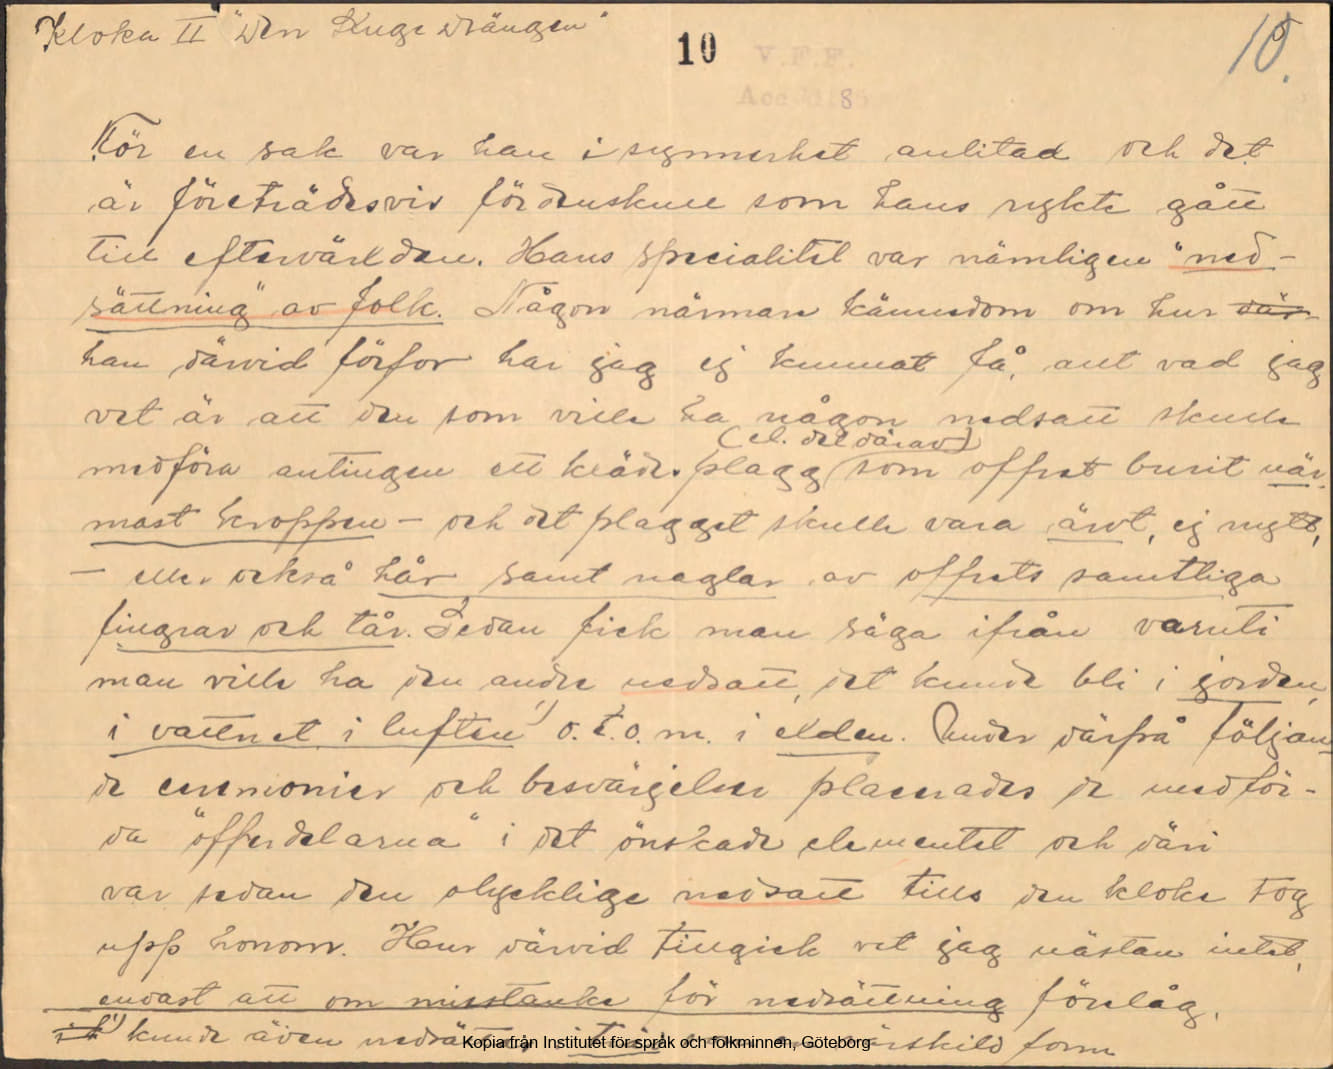 Kloka II "Den Kuge Drängen"
10
10.
V.F.F.
Acc
För en sak var han i synnerhet anlitad och det
är företrädesvis fördenskull som hans rykte gått
till eftervärlden. Hans specialitet var nämligen "ned-
sättning" av folk. Någon närmare kännedom om hur där
han därvid förfor har jag ej kunnat få, allt vad jag
vet är att den som ville ha någon nedsatt skulle
(el. del därav)
medföra antingen ett klädesplagg som offret burit när-
mast kroppen – och det plagget skulle vara ärvt, ej nytt,
– eller också hår samt naglar av offrets samtliga
fingrar och tår. Sedan fick man säga ifrån varuti
man ville ha den andre nedsatt, det kunde bli i jorden,
i vattnet i luften 1) o.t.o.m. i elden. Under därpå följan-
de ceremonier och besvärjelser placerades de medför-
da "offerdelarna" i det önskade elementet och däri
var sedan den olycklige nedsatt tills den kloke tog
upp honom. Hur därvid tillgick vet jag nästan intet,
endast att om misstanke för nedsättning förelåg,
1) kunde även nedsättas i särskild form
Kopia från Institutet för språk och folkminnen, Göteborg